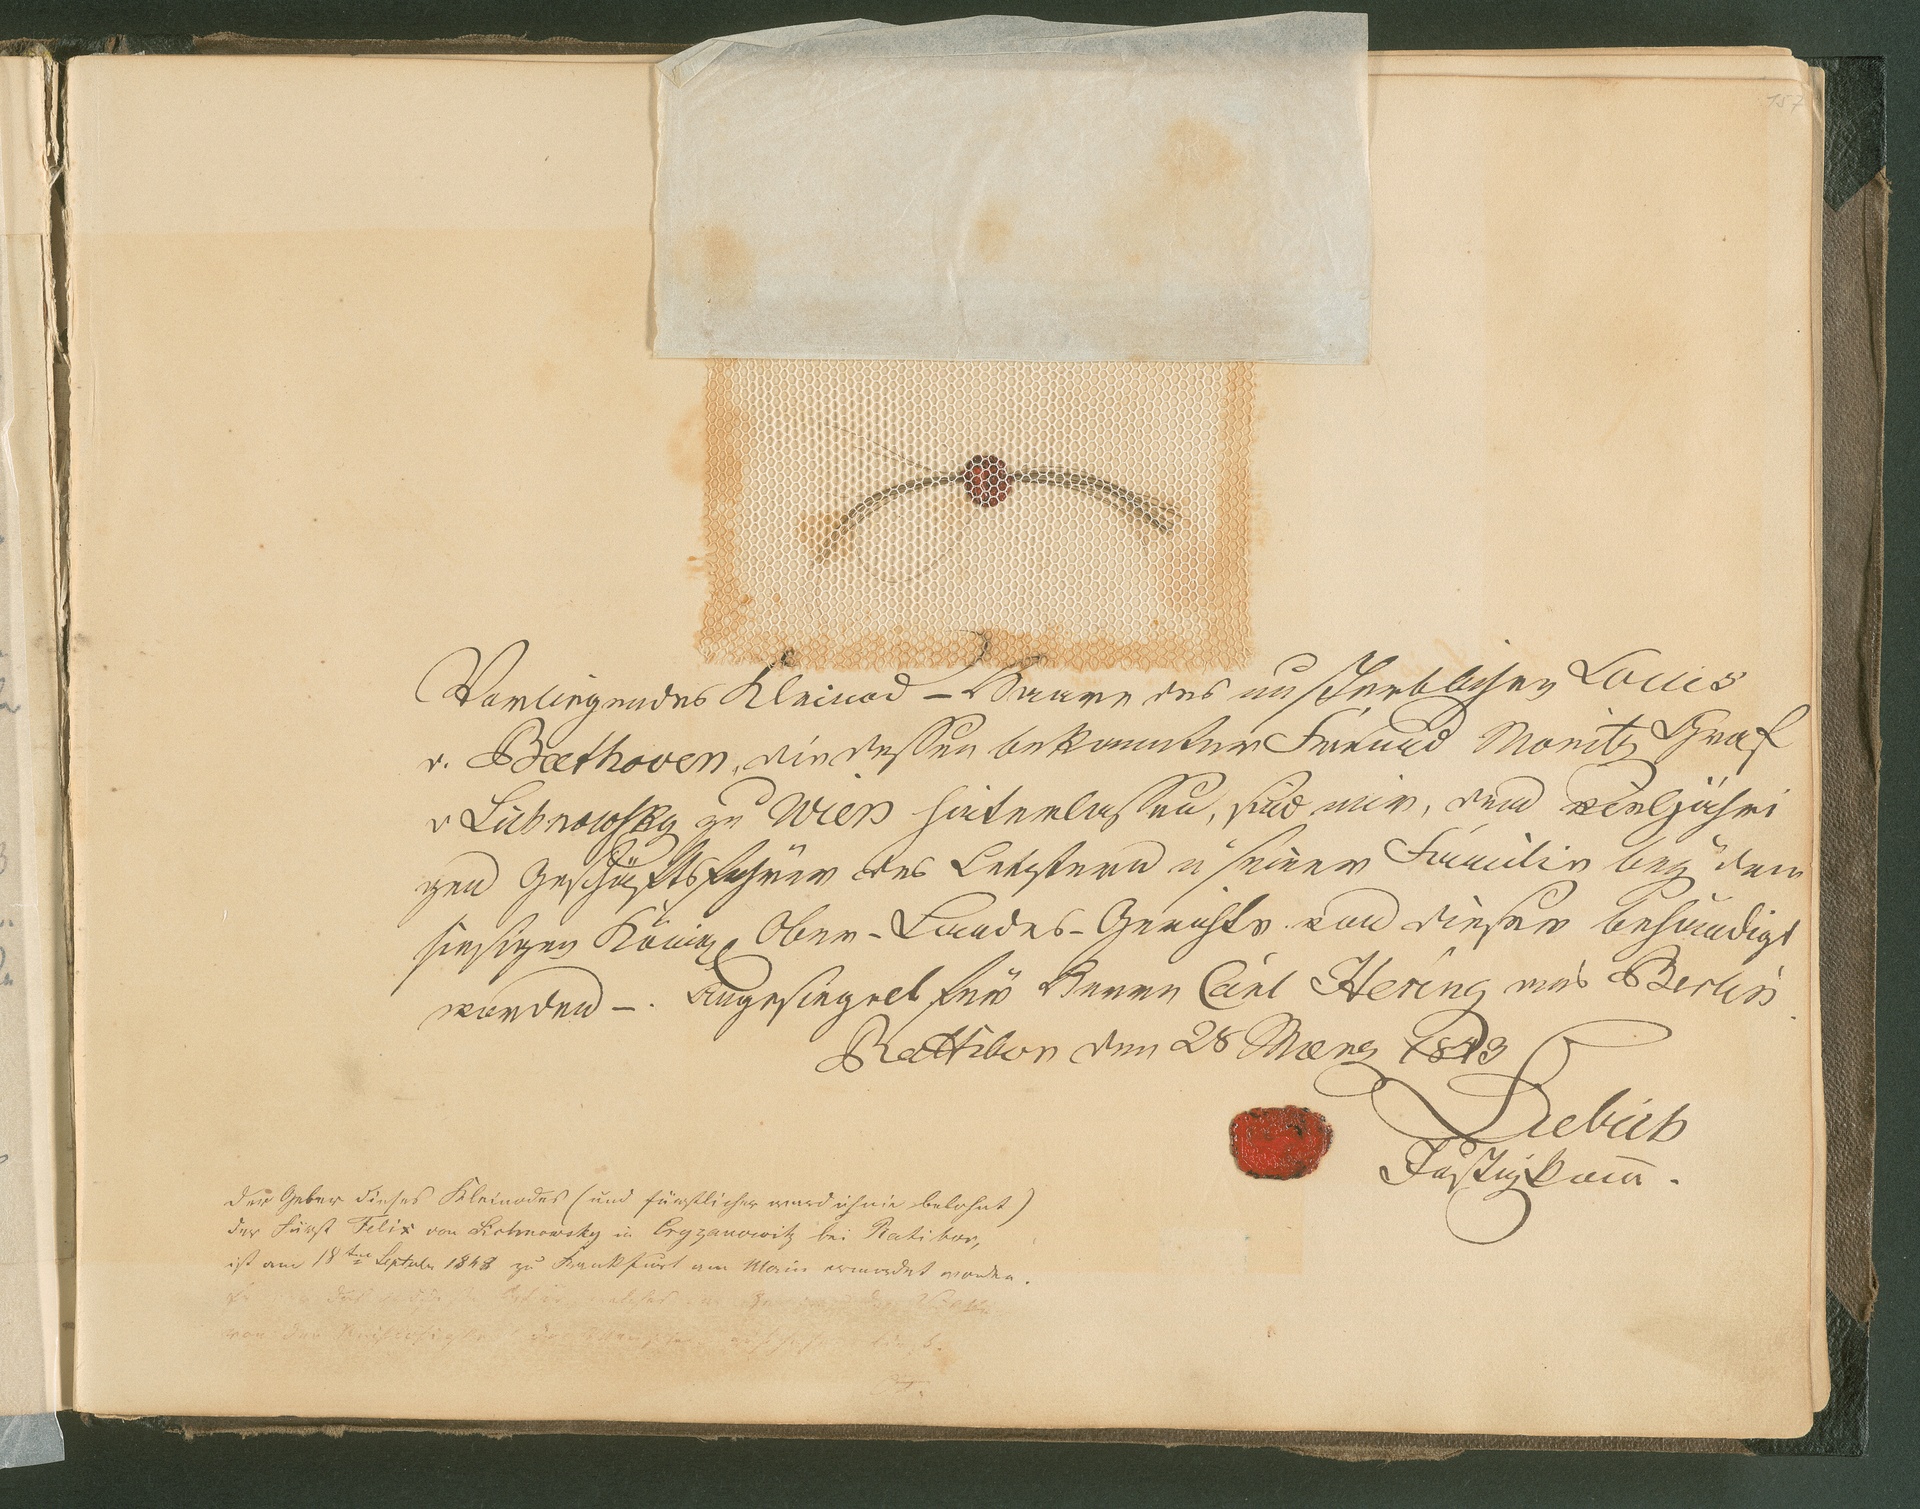 157
Vorliegendes Kleinod – Haare des unsterblichen Louis
v. Beethoven, die dessen bekannter Freund Moritz Graf
v Lichnowsky zu Wien hinterlassen, sind mir, dem vieljähri
gen Geschäftsführer des Letztern u seiner Familie bey dem
hiesigen Königl Ober-Landes-Gericht von dieser behändigt
worden –. Angesiegelt für Herrn Carl Hering aus Berlin.
Rattibor den 28 Maerz 1843
Liebich
Justizkom̄.
Der Geber dieses Kleinodes (und fürstlicher ward ich nie belohnt)
der Fürst Felix von Lichnowsky in Cryzanowitz bei Ratibor,
ist am 18ten September 1848 zu Frankfurt am Main ermordet worden.
von der